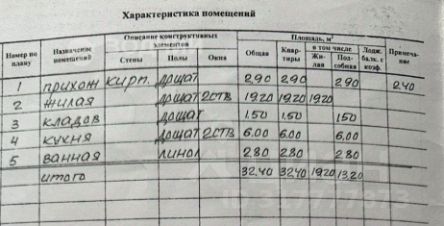 Характеристика помещений
Номер по плану Назначение помещений Описание конструктивных элементов Площадь, м² Примеча-
ние
Стены Полы Окна Общая Квар-
тиры в том числе Лодж. балк. с коэф.
Жи-
лая Под-
собная
1 прихож кирп. дощат 2.90 2.90 2.90 2.40
2 жилая дощат 2ств 19.20 19.20 19.20
3 кладов дощат 1.50 1.50 1.50
4 кухня дощат 2ств 6.00 6.00 6.00
5 ванная линол 2.80 2.80 2.80
итого 32.40 32.40 19.20 13.20